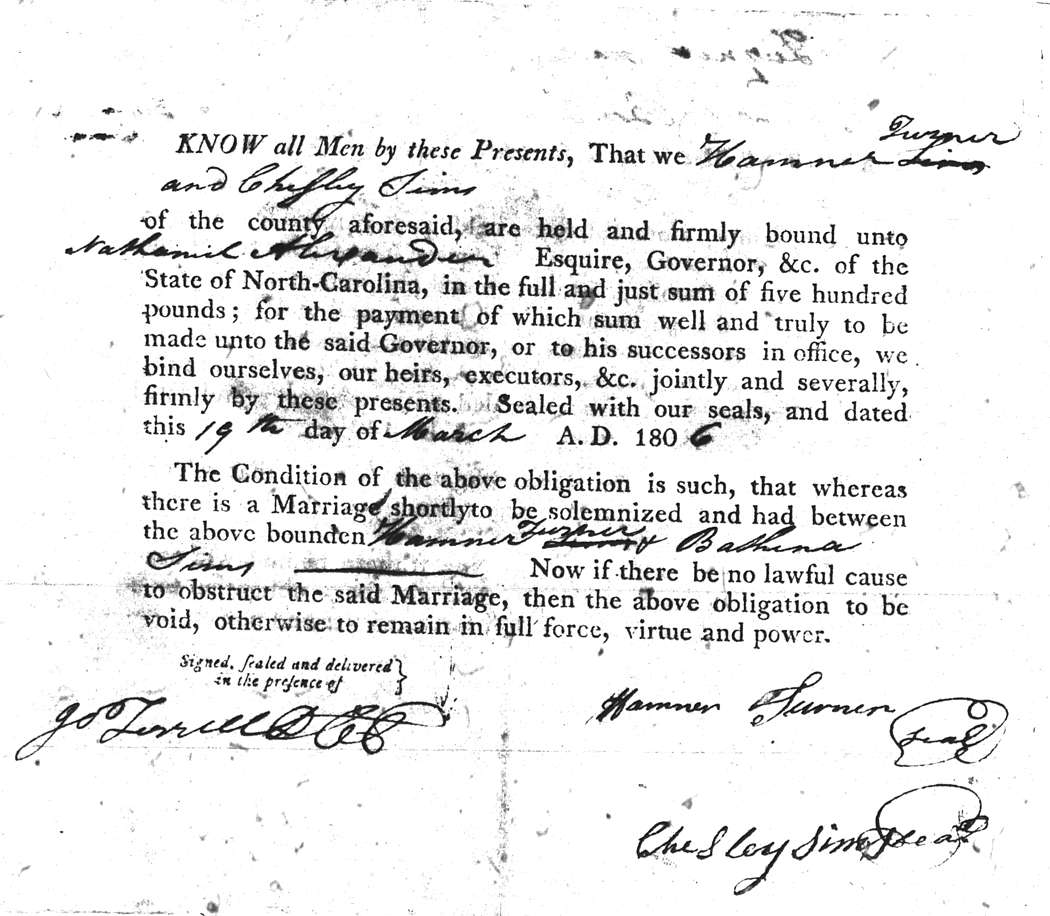 KNOW all Men by these Presents, That we Hamner Turner Sims
and Chesley Sims
of the county aforesaid, are held and firmly bound unto
Nathaniel Alexander Esquire, Governor, &c. of the
State of North-Carolina, in the full and just sum of five hundred
pounds; for the payment of which sum well and truly to be
made unto the said Governor, or to his successors in office, we
bind ourselves, our heirs, executors, &c. jointly and severally,
firmly by these presents. Sealed with our seals, and dated
this 19th day of March A. D. 1806
The Condition of the above obligation is such, that whereas
there is a Marriage shortly to be solemnized and had between
the above bounden Hamner Turner Sims & Bathena
Sims Now if there be no lawful cause
to obstruct the said Marriage, then the above obligation to be
void, otherwise to remain in full force, virtue and power.
Signed, ſealed and delivered
in the preſence of
Jo Terrell D C C
Hamner Turner
Seal
Chesley Sims Seal